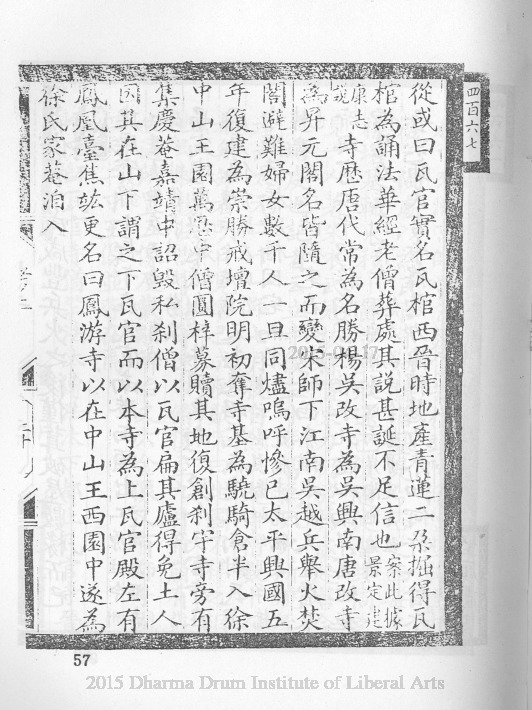 四百六七
從或曰瓦官實名瓦棺西晉時地產青蓮二朶掘得瓦
棺為誦法華經老僧葬處其說甚誕不足信也案此據景定建
康志說寺歷唐代常為名勝楊吳改寺為吳興南唐改寺
為昇元閣名皆隨之而變宋師下江南吳越兵舉火焚
閣避難婦女數千人一旦同燼嗚呼慘已太平興國五
年復建為崇勝戒壇院明初奪寺基為驍騎倉半入徐
中山王園萬曆中僧圓梓募贖其地復創刹宇寺旁有
集慶菴嘉靖中詔毀私刹僧以瓦官扁其廬得免土人
因其在山下謂之下瓦官而以本寺為上瓦官殿左有
鳳凰臺焦竑更名曰鳳游寺以在中山王西園中遂為
徐氏家菴洎入
57
2015 Dharma Drum Institute of Liberal Arts